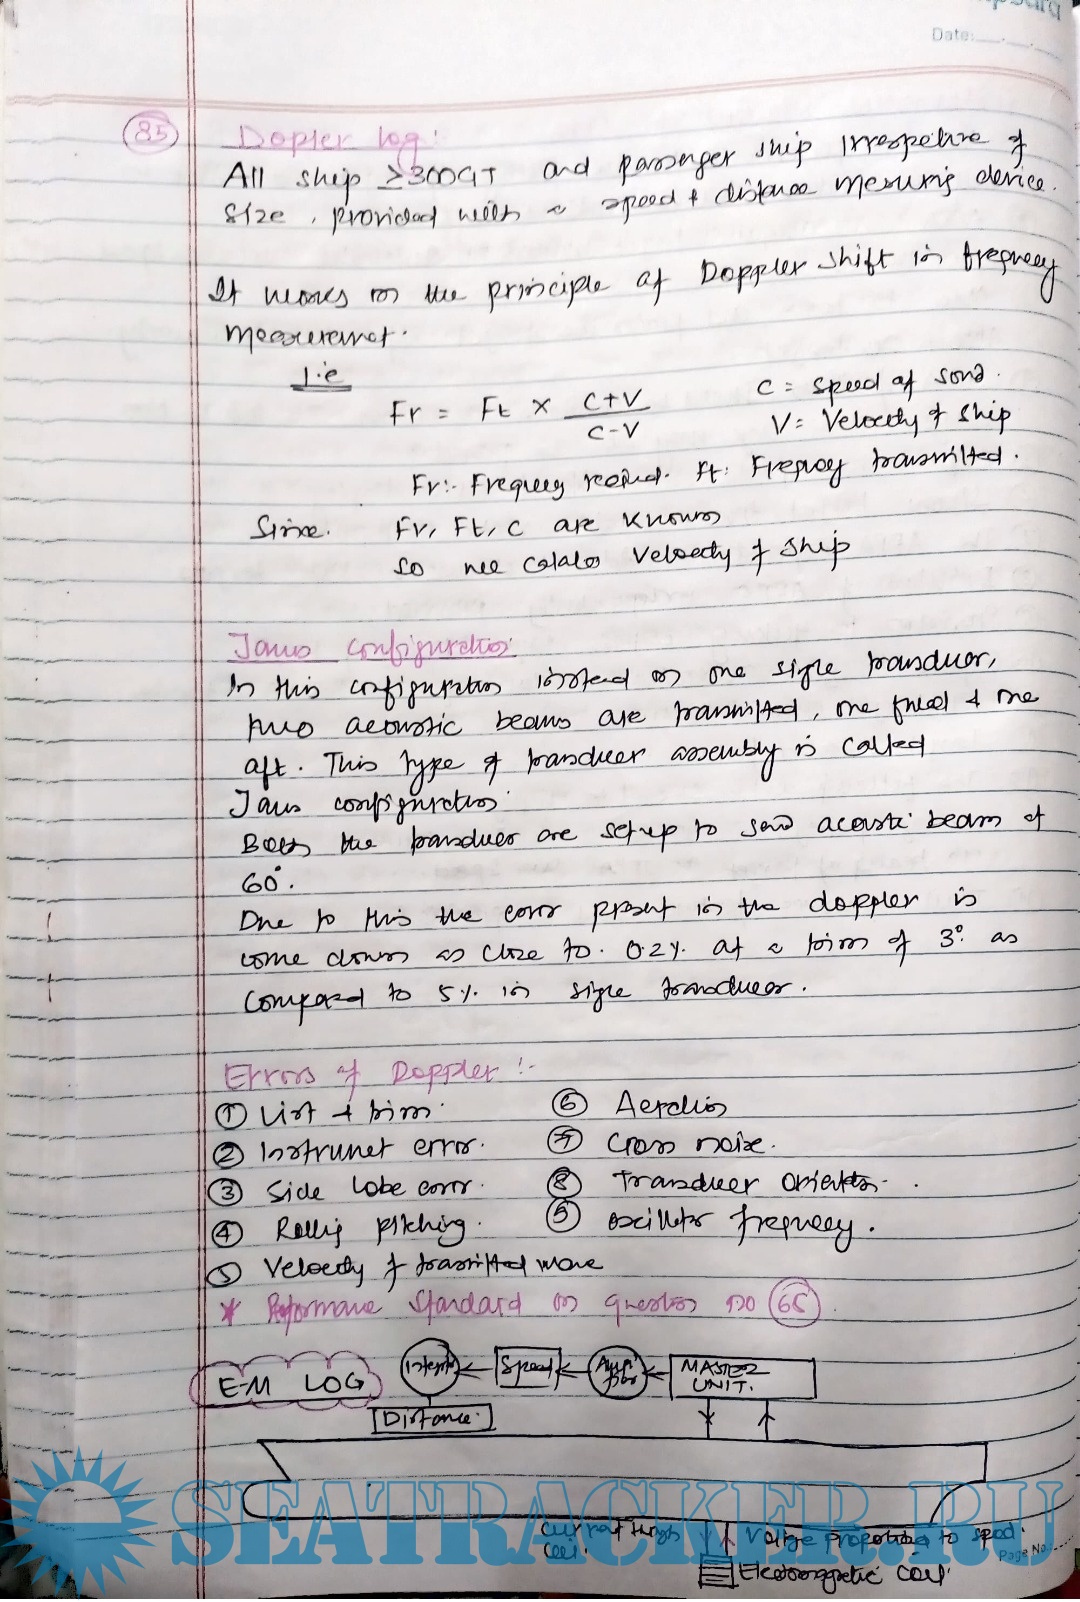 Date:
85
Dopler log:
All ship ≥300GT and passenger ship irrespective of
size, provided with a speed + distance mesuring device.
It works on the principle of Doppler shift in frequency
measuremet.
I.e
Fr = Ft × C+V / C-V
C = Speed of sond.
V = Velocity of ship
Fr:- Frequecy recived. Ft: Frequecy transmitted.
Since. Fr, Ft, C are known
so we calclate velocity of ship
Janus configuration
In this configuration instead on one single transducer,
two acoustic beams are transmitted, one fwd + one
aft. This type of transducer assembly is called
Janus configuration
Both the transducer are setup to send acoustic beam at
60°.
Due to this the error present in the doppler is
come down as close to. 0.2%. at a trim of 3°. as
Compared to 5%. in single transducer.
Errors of Doppler :-
① List + trim.
② Instrumet error.
③ Side lobe error.
④ Rolling pitching.
⑤ Velocity of transmitted wave
⑥ Aeration
⑦ Cross noise.
⑧ Transducer orientation.
⑨ oscillator frequency.
* Performance Standard on question no 65
E-M LOG
Speed
MASTER UNIT.
Distance.
Current through coil.
Voltage proportional to speed.
Page No.
Electromagnetic coil
SEATRACKER.RU